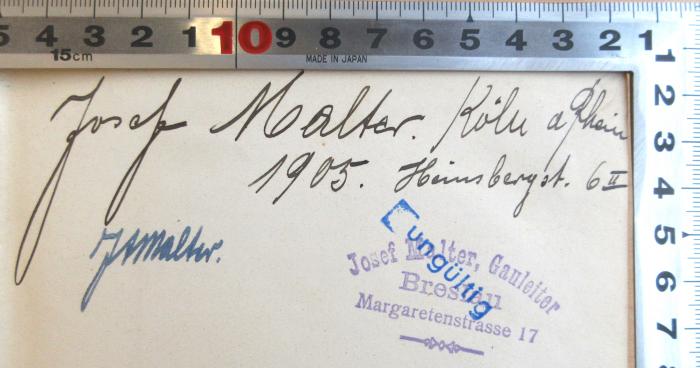 5 4 3 2 1 10 9 8 7 6 5 4 3 2 1
15cm
MADE IN JAPAN
2
3
4
5
6
7
8
Josef Malter. Köln a Rhein
1905. Heinsbergst. 6 II
JosMalter.
ungültig
Josef Malter, Gauleiter
Breslau
Margaretenstrasse 17